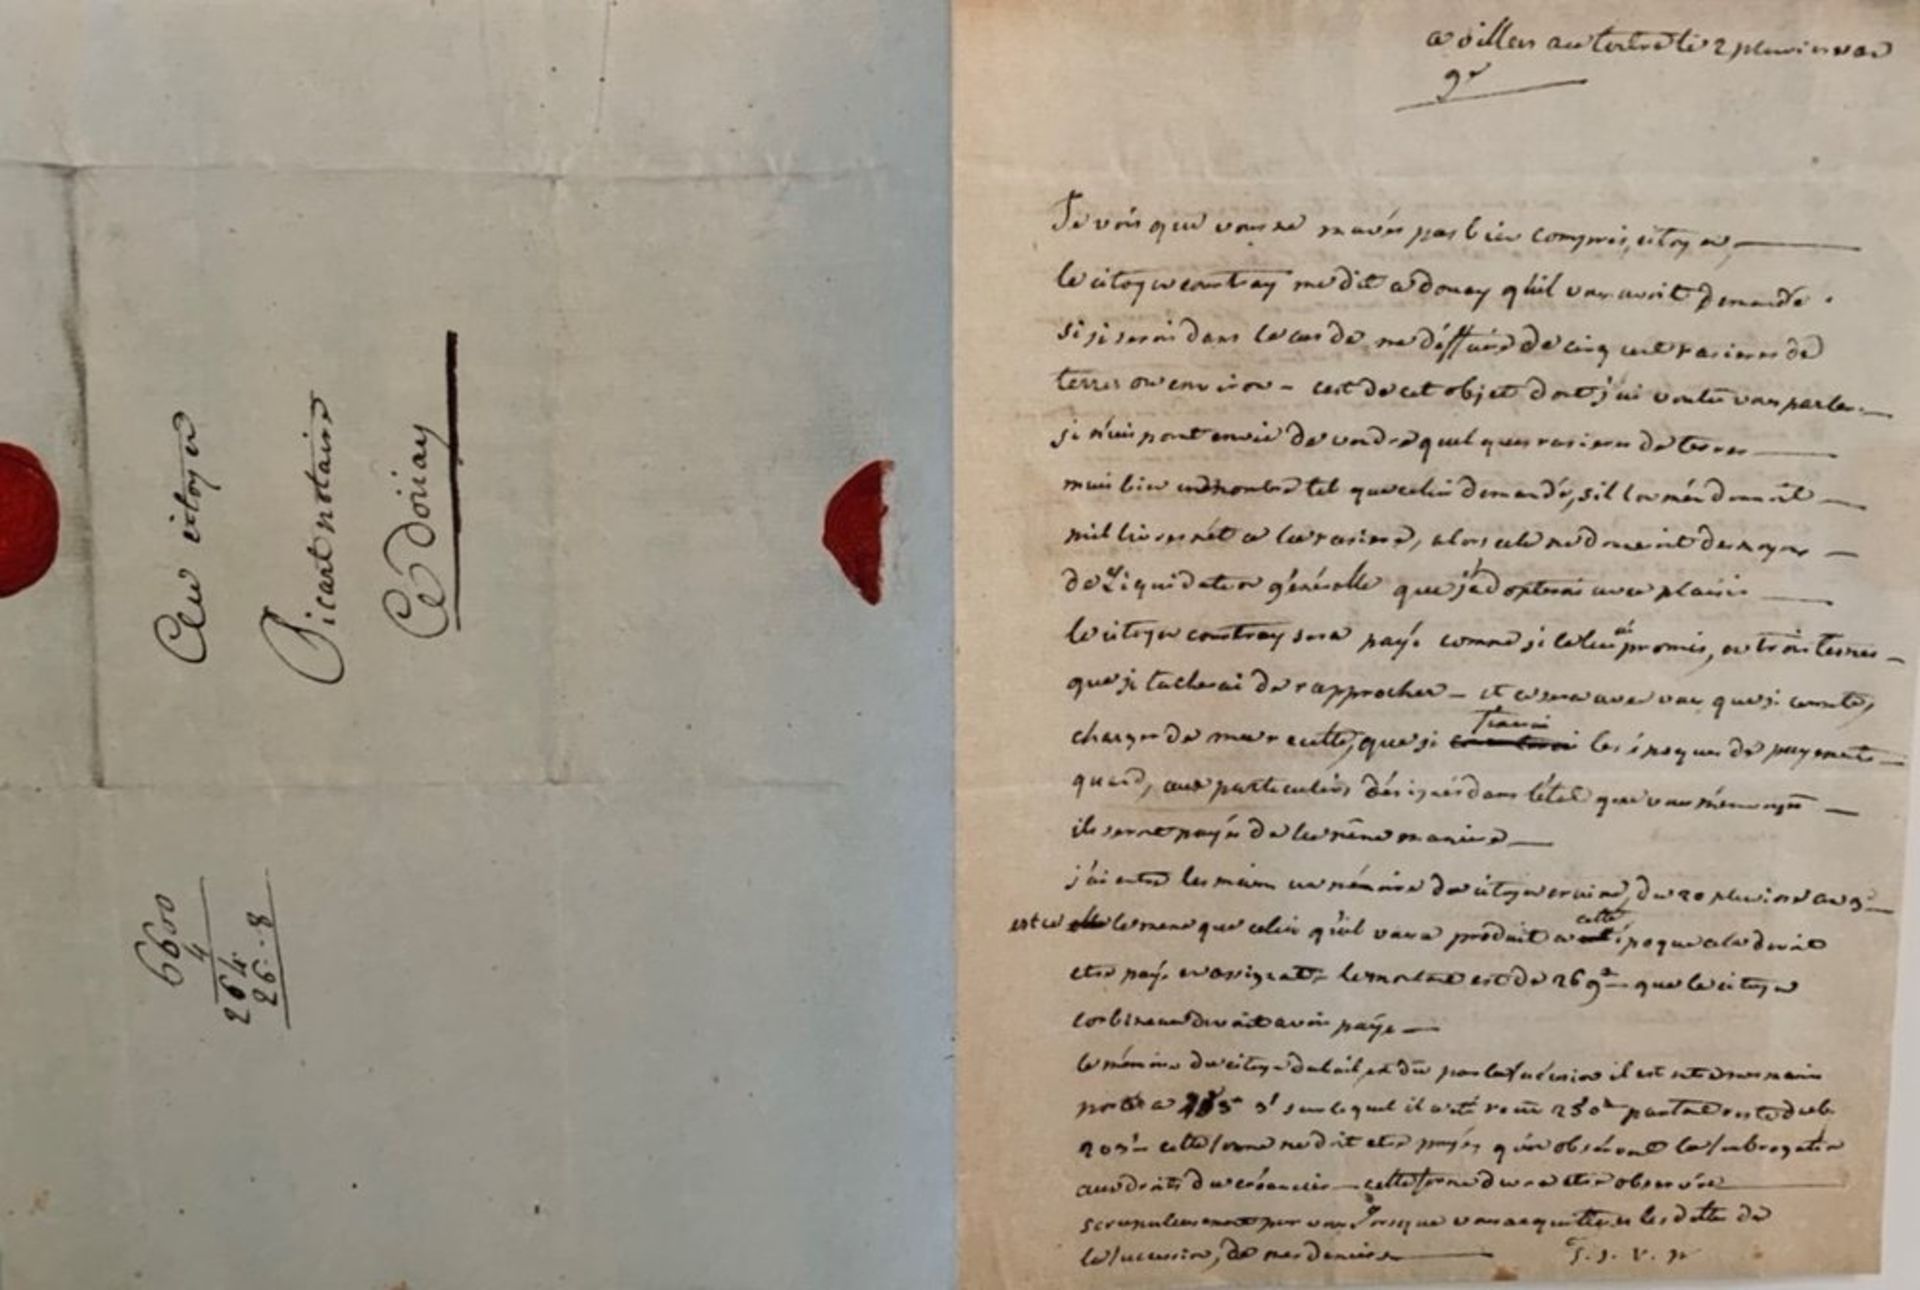 Au citoyen
Picart notaire
A doüay
6600
4
264
26.8
a villers au tertre le 2 pluviose an
9e
Je vois que vous ne m'avés pas bien compris, citoyen,
le citoyen courtray me dit a douay qu'il vous avoit demandé
si je serois dans le cas de me déffaire de cinq cent rasieres de
terres ou environ - c'est de cet objet dont j'ai voulu vous parler.
je n'ai point envie de vendre quelques rasieres de terres
mais bien un nombre tel que celui demandé, s'il m'en donnoit
mil livres nét a la rasiere, alors cela me donneroit des moyens
de Liquidation générale que j'adopterai avec plaisir
le citoyen courtray sera payé comme je le lui ai promis, en trois termes
que je tacherai de rapprocher - et ce sera avec vous que je compte,
chargé de ma recette, que je fixerai les époques de payements
quand, aux particuliers désignés dans l'état que vous m'envoyés
ils seront payés de la même maniere
j'ai entre les mains un mémoire du citoyen, du 20 pluviose an 3
est ce le meme que celui qu'il vous a produit a cette époque cela devoit
etre payé en assignats - le montant est de 269 que le citoyen
corbineau devoit avoir payé
le mémoire du citoyen est dû par la succession il est entre mes mains
porté a sur lequel il a été reçu 250 partant reste dub
203 cette somme ne doit etre payée, qu'en observant la subrogation
aux droits du créancier - cette forme devra etre observée
scrupuleusement par vous Lorsque vous acquitterés les dettes de
la succession, de mes deniers T.S.V.P